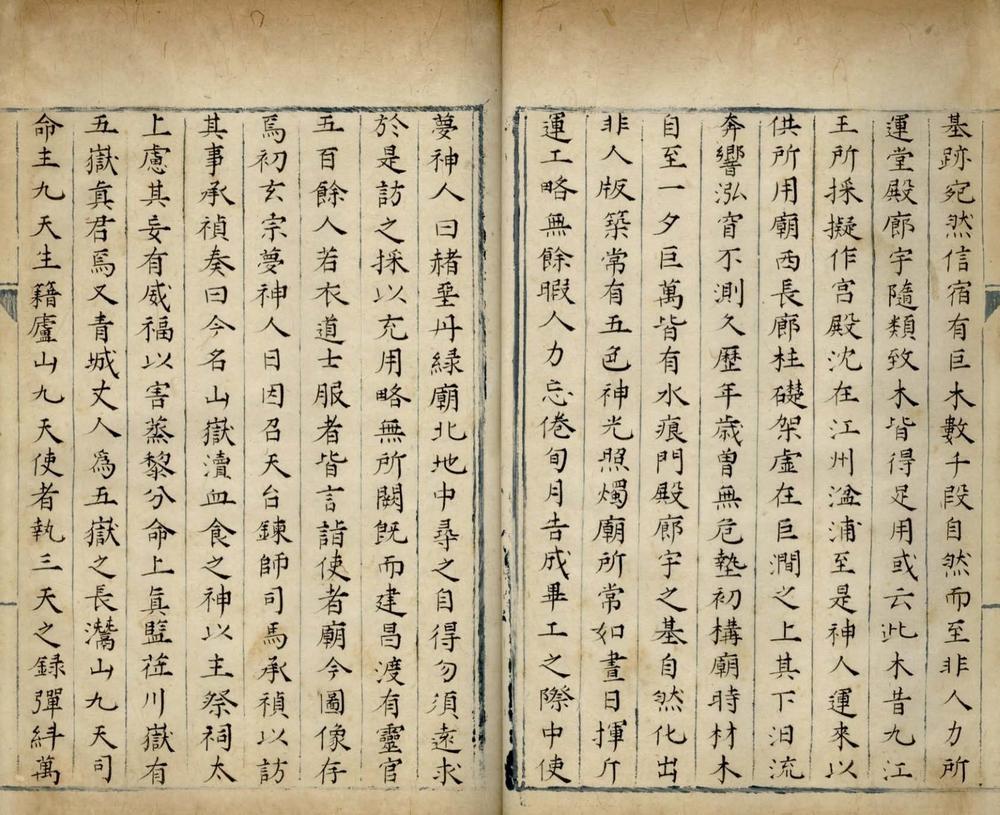 基跡宛然信宿有巨木數千段自然而至非人力所
運堂殿廊宇隨類致木皆得足用或云此木昔九江
王所採擬作宮殿沈在江州湓浦至是神人運來以
供所用廟西長廊柱礎架虛在巨澗之上其下汩流
奔響泓窅不測久歷年歲曾無危墊初構廟時材木
自至一夕巨萬皆有水痕門殿廊宇之基自然化出
非人版築常有五色神光照燭廟所常如晝日揮斤
運工略無餘暇人力忘倦旬月告成畢工之際中使
夢神人曰赭堊丹綠廟北地中尋之自得勿須遠求
於是訪之採以充用略無所闕既而建昌渡有靈官
五百餘人若衣道士服者皆言詣使者廟今圖像存
焉初玄宗夢神人日因召天台鍊師司馬承禎以訪
其事承禎奏曰今名山嶽瀆血食之神以主祭祠太
上慮其妄有威福以害蒸黎分命上真監莅川嶽有
五嶽真君焉又青城丈人為五嶽之長灊山九天司
命主九天生籍廬山九天使者執三天之錄彈糾萬